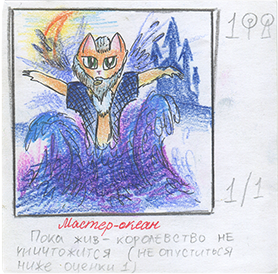 1
1/1
Мастер-океан
Пока жив - королевство не
уничтожится (не опуститься
ниже оценки 1)